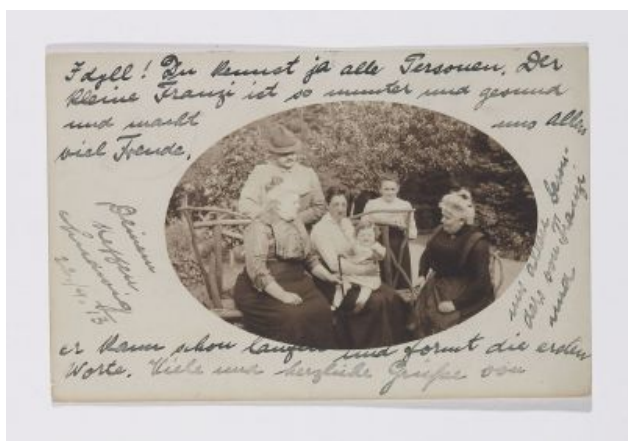 Idyll! Du kennst ja alle Personen. Der
kleine Franzi ist so munter und gesund
und macht uns Allen
viel Freude,
er kann schon laufen und formt die ersten
Worte. Viele und herzliche Grüße von
uns allen beson-
ders von Franzi
und
Deinem
Neffen
Ludwig